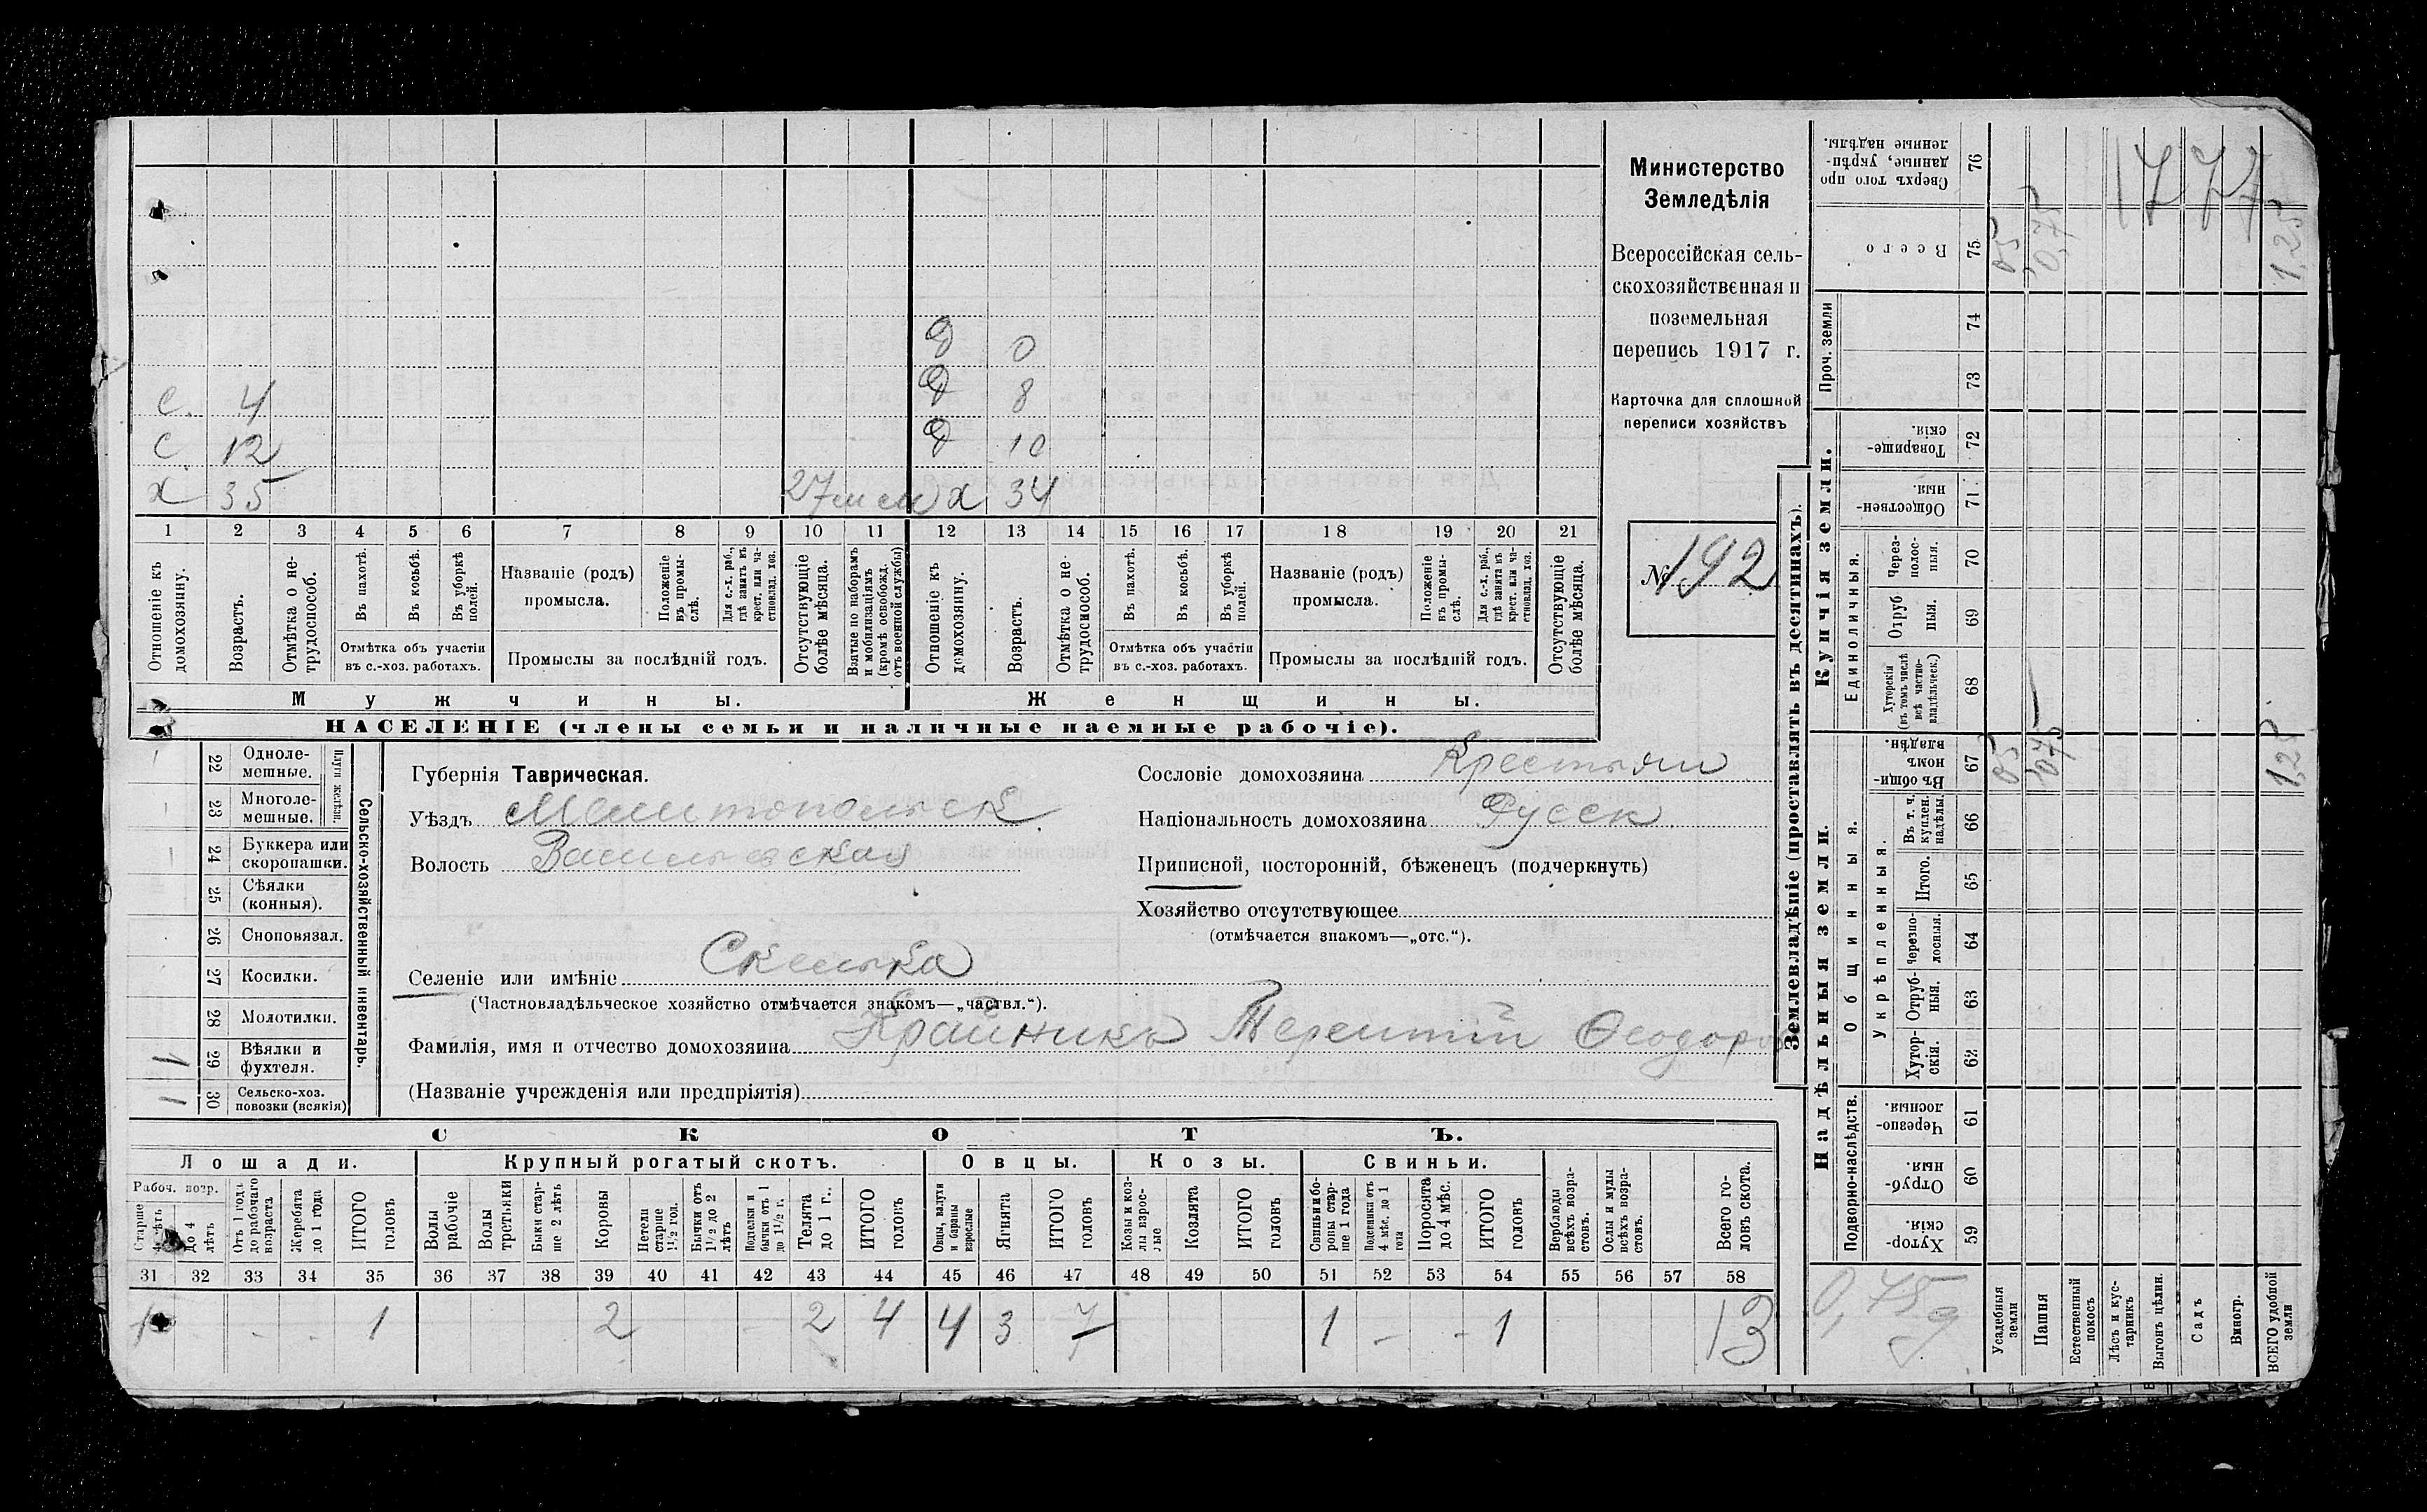 Министерство
Земледѣлія
Всероссійская сель-
скохозяйственная и
поземельная
перепись 1917 г.
Карточка для сплошной
переписи хозяйствъ
№ 192
д 0
с. 4 д 8
с 12 д 10
х 35 27 х 34
1 2 3 4 5 6 7 8 9 10 11 12 13 14 15 16 17 18 19 20 21
Отношеніе къ домохозяину.
Возрастъ.
Отмѣтка о не-трудоспособ.
Въ пахотѣ.
Въ косьбѣ.
Въ уборкѣ полей.
Отмѣтка объ участіи въ с.-хоз. работахъ.
Названіе (родъ) промысла.
Положеніе въ промы-слѣ.
Для с.-х. раб., гдѣ занятъ въ крест. или ча-стновлад. хоз.
Промыслы за послѣдній годъ.
Отсутствующіе болѣе мѣсяца.
Взятые по наборамъ и мобилизаціямъ (кромѣ освобожд. отъ военной службы)
Отношеніе къ домохозяину.
Возрастъ.
Отмѣтка о не-трудоспособ.
Въ пахотѣ.
Въ косьбѣ.
Въ уборкѣ полей.
Отмѣтка объ участіи въ с.-хоз. работахъ.
Названіе (родъ) промысла.
Положеніе въ промы-слѣ.
Для с.-х. раб., гдѣ занята въ крест. или ча-стновлад. хоз.
Промыслы за послѣдній годъ.
Отсутствующіе болѣе мѣсяца.
Мужчины. Женщины.
НАСЕЛЕНІЕ (члены семьи и наличные наемные рабочіе).
Сельско-хозяйственный инвентарь.
Плуги желѣзн.
22 Одноле-мешные.
23 Многоле-мешные.
24 Буккера или скоропашки.
25 Сѣялки (конныя).
26 Сноповязал.
27 Косилки.
28 Молотилки.
1 29 Вѣялки и фухтеля.
1 30 Сельско-хоз. повозки (всякія)
Губернія Таврическая.
Уѣздъ Мелитопольск.
Волость Васильевская
Селеніе или имѣніе Скелька
(Частновладѣльческое хозяйство отмѣчается знакомъ—„частвл.“).
Фамилія, имя и отчество домохозяина Крайнико Терентій Ѳеодоров
(Названіе учрежденія или предпріятія)
Сословіе домохозяина Крестьян
Національность домохозяина Русск
Приписной, посторонній, бѣженецъ (подчеркнуть)
Хозяйство отсутствующее
(отмѣчается знакомъ—„отс.“).
СКОТЪ.
Лошади. Крупный рогатый скотъ. Овцы. Козы. Свиньи.
Рабоч. возр.
Старше 4 лѣтъ
До 4 лѣтъ
Отъ 1 года до рабочаго возраста
Жеребята до 1 года
ИТОГО головъ
Волы рабочіе
Волы третьяки
Быки стар-ше 2 лѣтъ
Коровы
Нетели старше 1½ гол.
Бычки отъ 1½ до 2 лѣтъ
Подтелки и бычки отъ 1 до 1½ г.
Телята до 1 г.
ИТОГО головъ
Овцы, валухи и бараны взрослые
Ягнята
ИТОГО головъ
Козы и коз-лы взрос-лые
Козлята
ИТОГО головъ
Свиньи и бо-ровы стар-ше 1 года
Подсвинки отъ 4 мѣс. до 1 года
Поросята до 4 мѣс.
ИТОГО головъ
Верблюды всѣхъ возра-стовъ.
Ослы и мулы всѣхъ возра-стовъ.
Всего го-ловъ скота.
31 32 33 34 35 36 37 38 39 40 41 42 43 44 45 46 47 48 49 50 51 52 53 54 55 56 57 58
1 1 2 2 4 4 3 7 1 - - 1 13
Землевладѣніе (проставлять въ десятинахъ).
Надѣльныя земли. Купчія земли. Проч. земли
Подворно-наслѣдств.
Общинныя.
Укрѣпленныя.
Единоличныя.
76 Сверхъ того про-данные, укрѣп-ленные надѣлы.
75 Всего
74
73
72 Товарище-скія.
71 Обществен-ныя.
70 Через-полос-ныя.
69 Отруб-ныя.
68 Хуторскія (въ томъ числѣ всѣ частно-владѣльческ.)
67 Въ общин-номъ владѣн.
66 Въ т. ч. куплен. надѣлы.
65 Итого.
64 Черезпо-лосныя.
63 Отруб-ныя.
62 Хутор-скія.
61 Черезпо-лосныя.
60 Отруб-ныя.
59 Хутор-скія.
Усадебныя земли
Пашня
Естественный покосъ
Лѣсъ и кус-тарникъ
Выгонъ цѣлин.
Садъ
Виногр.
ВСЕГО удобной земли
1777
05 0,75 1,25
05 075 1,25
0,75